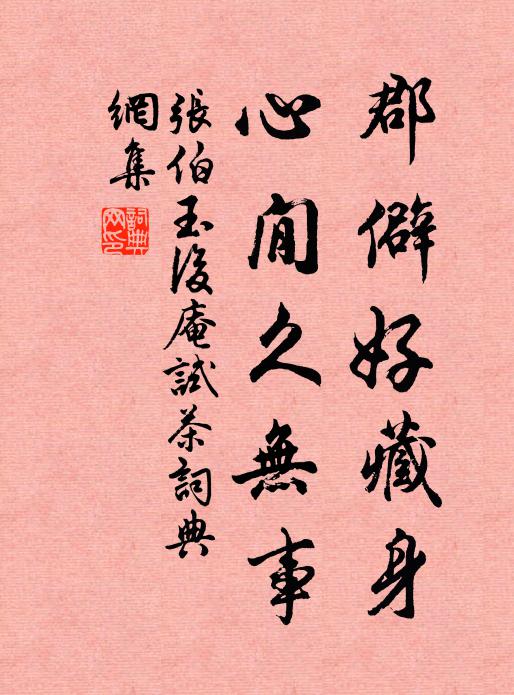 郡僻好藏身
心閒久無事
張伯玉後庵試茶詞典
網集
詞典
網印